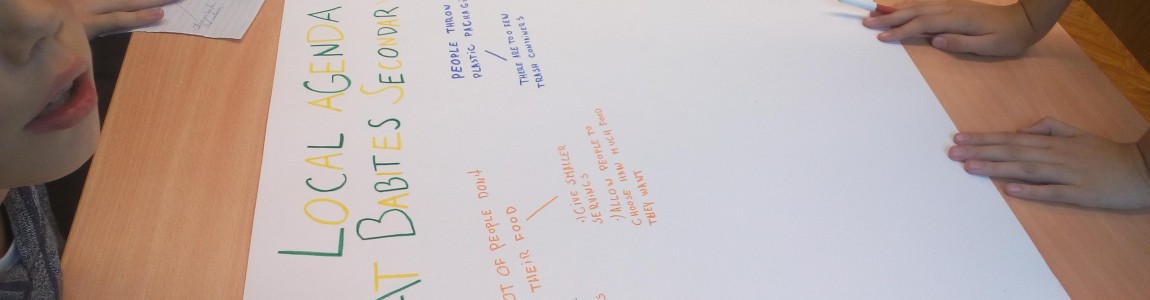 LOCAL AGENDA
AT BABITES SECONDAR
PEOPLE THROW
PLASTIC PACKAGI
THERE ARE TOO FEW
TRASH CONTAINERS
OT OF PEOPLE DON'T
THEIR FOOD
·) GIVE SMALLER
SERVINGS
·) ALLOW PEOPLE TO
CHOOSE HAW MUCH FOOD
THEY WANT